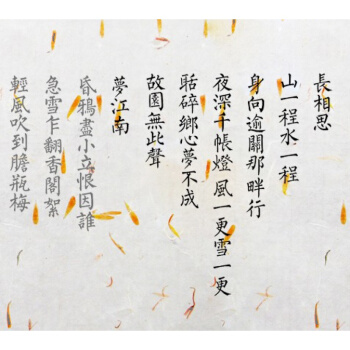 長相思
山一程水一程
身向逾關那畔行
夜深千帳燈 風一更雪一更
聒碎鄉心夢不成
故園無此聲
夢江南
昏鴉盡小立恨因誰
急雪乍翻香閣絮
輕風吹到膽瓶梅